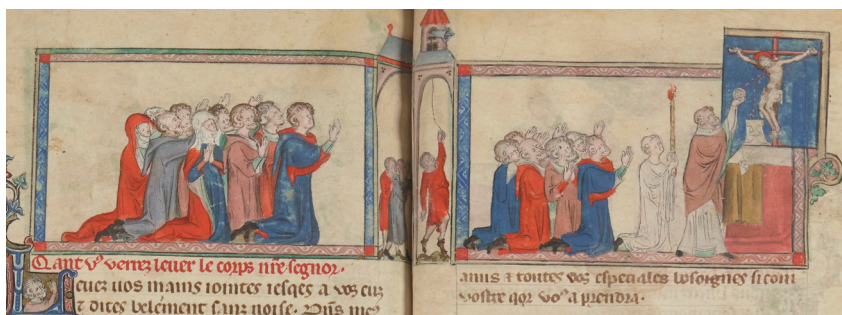 Qant vꝰ verrez leuer le corps nr̃e segnor.
Leuez uos mains iointes iesqes a vos euz
⁊ dites belement sanz noise.
amis ⁊ toutes voz especiales bosoignes si com
vostre qor voꝰ aprendra.